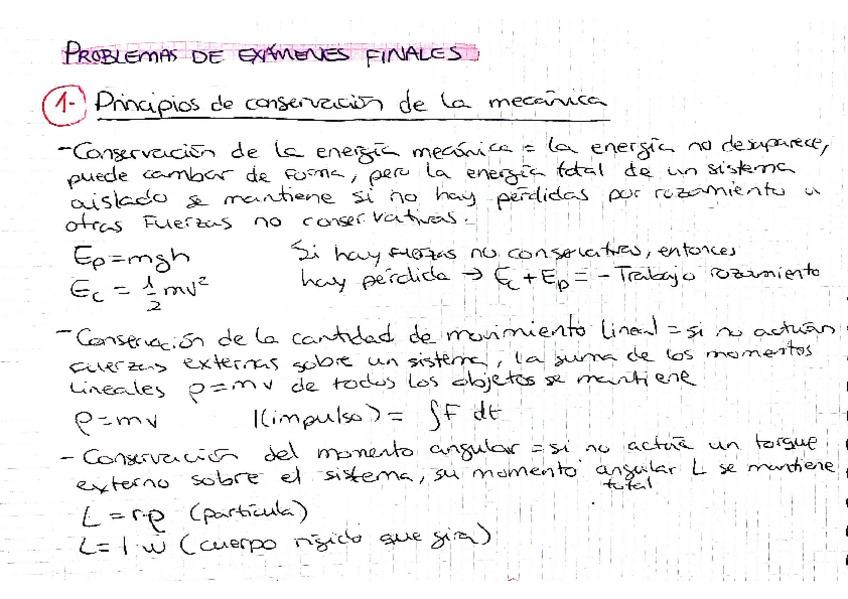 PROBLEMAS DE EXÁMENES FINALES
1- Principios de conservación de la mecánica
- Conservación de la energía mecánica = la energía no desaparece,
puede cambar de forma, pero la energía total de un sistema
aislado se mantiene si no hay pérdidas por rozamiento u
otras fuerzas no conservativas.
Ep = mgh Si hay fuerzas no conservativas, entonces
Ec = 1/2 mv² hay pérdida → Ec + Ep = - Trabajo rozamiento
- Conservación de la cantidad de movimiento lineal = si no actúan
fuerzas externas sobre un sistema, la suma de los momentos
lineales p = mv de todos los objetos se mantiene
p = mv I(impulso) = ∫F dt
- Conservación del momento angular = si no actúa un torque
externo sobre el sistema, su momento angular L se mantiene
total
L = r·p (partícula)
L = I·w (cuerpo rígido que gira)